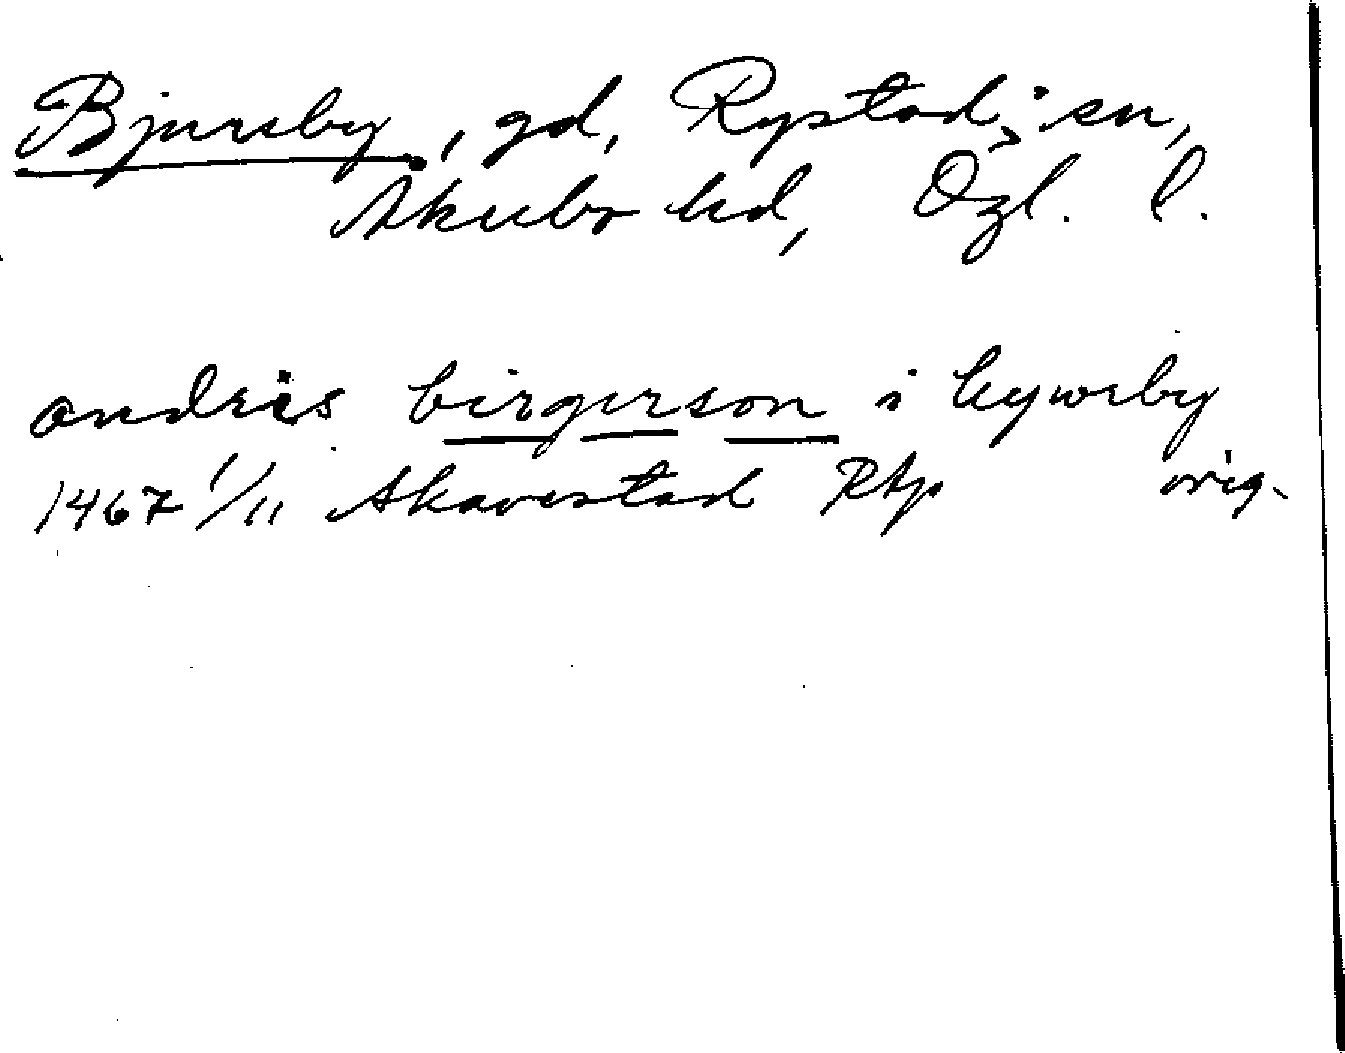 Bjursby, gd, Rystad, sn,
Åkerbo hd, Ögl. l.
andris birgerson i bywrby
1467 1/11 Skavestad Rtp orig.